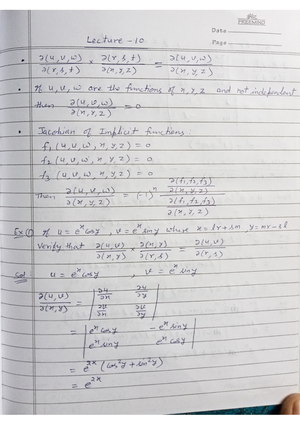 PREEMINENT
Date
Page
Lecture - 10
• ∂(u,v,w)/∂(r,s,t) × ∂(r,s,t)/∂(x,y,z) = ∂(u,v,w)/∂(x,y,z)
• If u,v,w are the functions of x,y,z and not independent
then ∂(u,v,w)/∂(x,y,z) = 0
• Jacobian of Implicit functions
f₁(u,v,w,x,y,z) = 0
f₂(u,v,w,x,y,z) = 0
f₃(u,v,w,x,y,z) = 0
Then ∂(u,v,w)/∂(x,y,z) = (-1)ⁿ
∂(f₁,f₂,f₃)/∂(x,y,z)
∂(f₁,f₂,f₃)
Ex ① If u = eˣcosy, v = eˣsiny where x = lr+sm, y = mr-sl
Verify that ∂(u,v)/∂(x,y) × ∂(x,y)/∂(r,s) = ∂(u,v)/∂(r,s)
Sol: u = eˣcosy, v = eˣsiny
∂(u,v)/∂(x,y) = | ∂u/∂x ∂u/∂y |
| ∂v/∂x ∂v/∂y |
= | eˣcosy -eˣsiny |
| eˣsiny eˣcosy |
= e²ˣ(cos²y + sin²y)
= e²ˣ